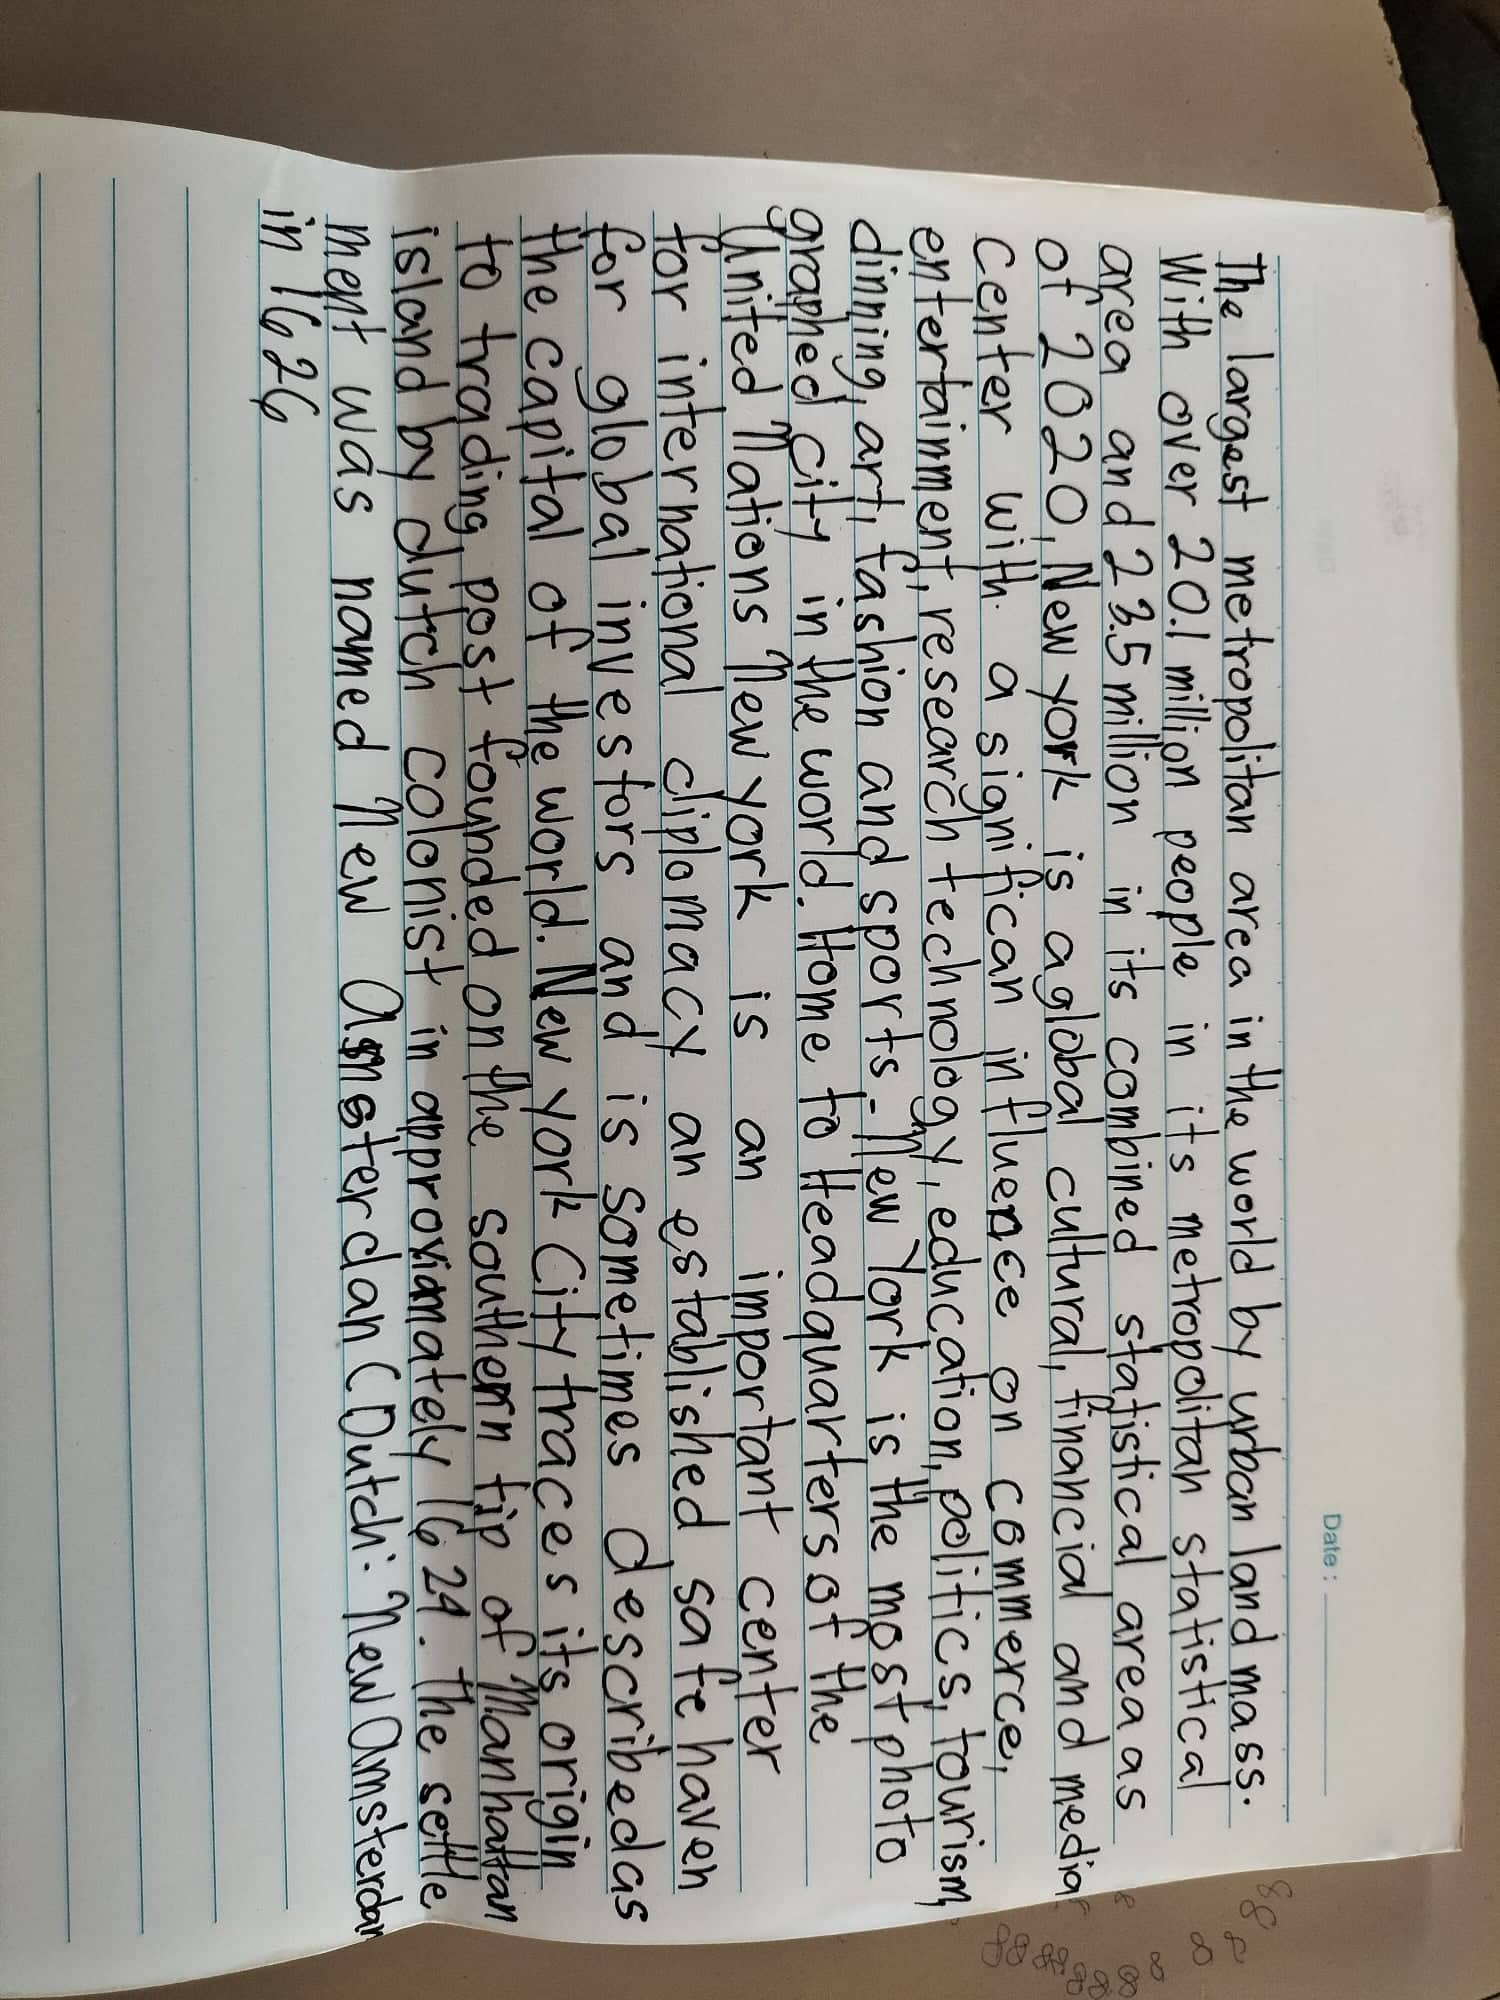 Date:
The largest metropolitan area in the world by urban land mass.
With over 20.1 million people in its metropolitan statistical
area and 23.5 million in its combined statistical area as
of 2020, New york is a global cultural, financial and media
Center with a significan influence on commerce,
entertainment, research technology, education, politics, tourism,
dinning, art, fashion and sports. New York is the most photo
graphed city in the world. Home to Headquarters of the
United Nations New york is an important center
for international diplomacy an established safe haven
for global investors and is sometimes described as
the capital of the world. New york City traces its origin
to trading post founded on the southern tip of Manhattan
island by dutch colonist in approximately 1624. The settle
ment was named New Amsterdan (Dutch: New Amsterdan
in 1626